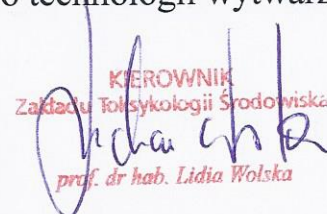 o technologii wytwarz
KIEROWNIK
Zakładu Toksykologii Środowiska
prof. dr hab. Lidia Wolska